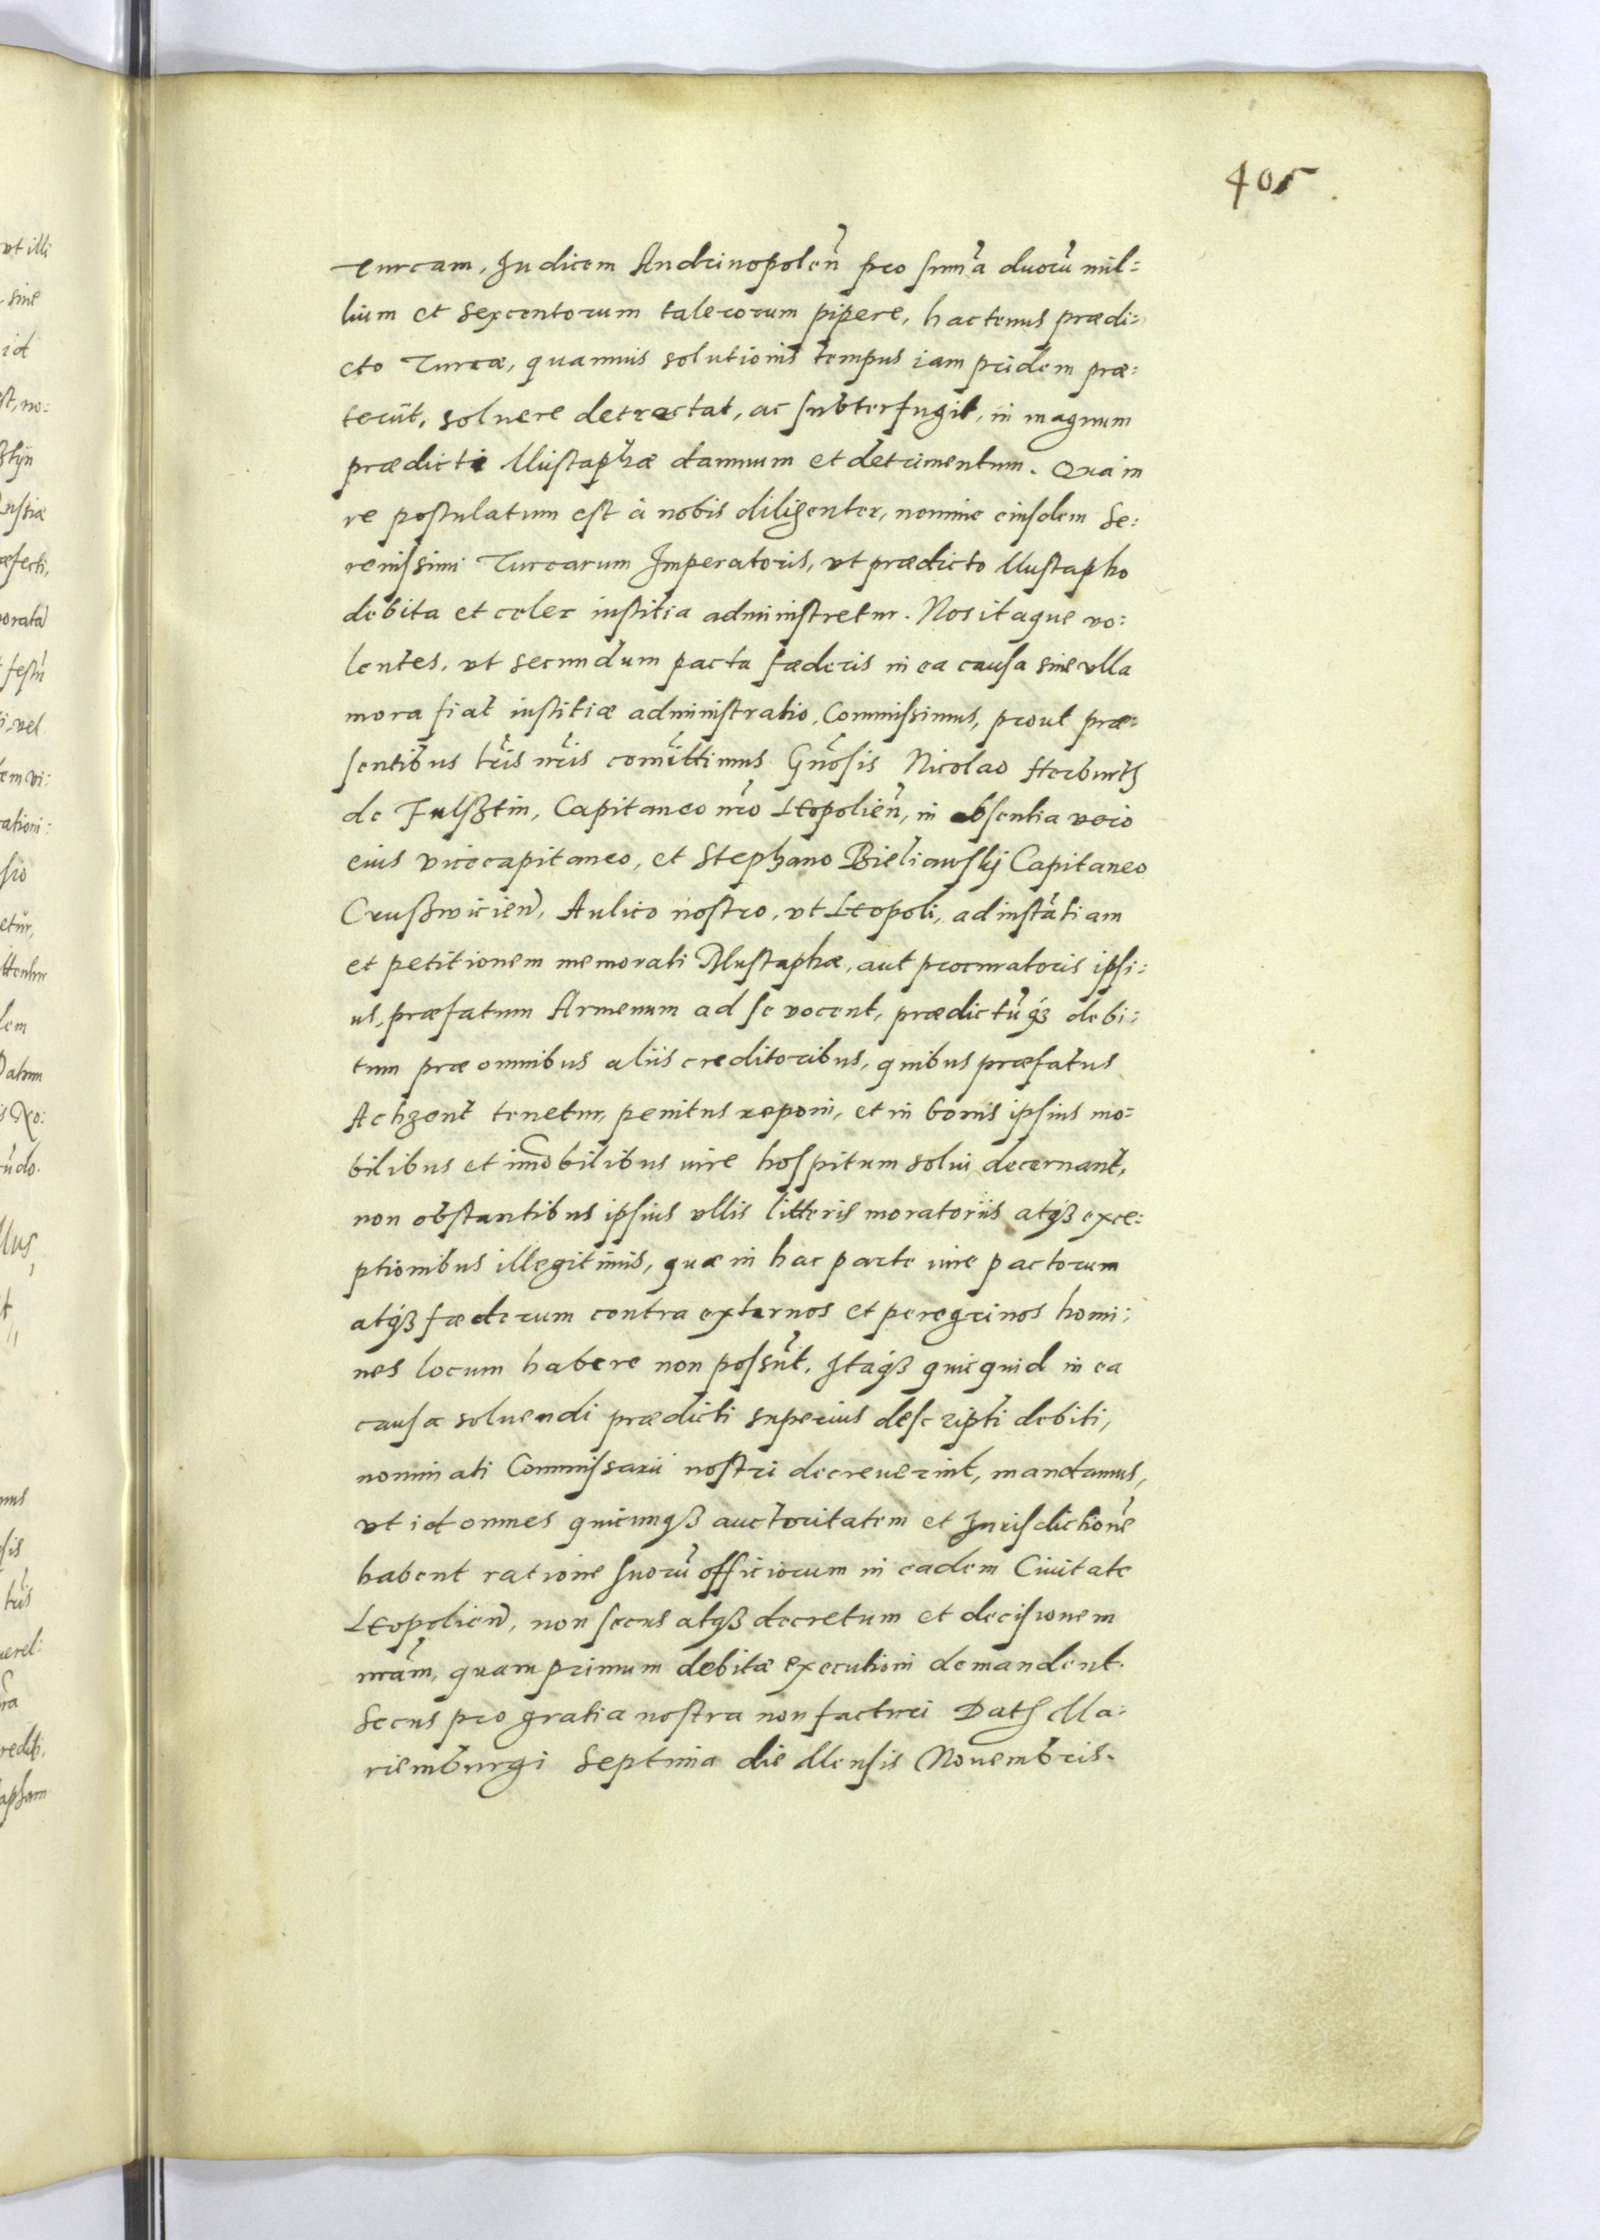 405
Turcam, Judicem Andrinopolen̄ pro sum̄a duorū mil:
lium et sexcentorum talerorum pipere, hactenus prædi:
cto Turcæ, quamuis solutionis tempus iam pridem præ:
terijt, soluere detrectat, ac subterfugit, in magnum
prædicti Mustaphæ damnum et detrimentum. Qua in
re postulatum est à nobis diligenter, nomine eiusdem Se:
renissimi Turcarum Imperatoris, vt prædicto Mustapho
debita et celer iustitia administretur. Nos itaque vo:
lentes, vt secundum pacta fæderis in ea causa sine vlla
mora fiat iustitiæ administratio, Commisimus, prout præ:
sentibus lr̄is nr̄is com̄ittimus Gn̄osis Nicolao Herburth
de Fulsztin, Capitaneo nr̄o Leopolien̄, in absentia vero
eius vicecapitaneo, et Stephano Bieliawskj Capitaneo
Cruszwicien̄, Aulico nostro, vt Leopoli, ad instātiam
et petitionem memorati Mustaphæ, aut procuratoris ipsi:
us, præfatum Armenum ad se vocent, prædictūqꝫ debi:
tum præ omnibus aliis creditoribus, quibus præfatus
Achzent tenetur, penitus reponi, et in bonis ipsius mo:
bilibus et im̄obilibus iure hospitum solui decernant,
non obstantibus ipsius vllis litteris moratoriis atqꝫ exce:
ptionibus illegitimis, quæ in hac parte iure pactorum
atqꝫ fæderum contra externos et peregrinos homi:
nes locum habere non possūt. Itaqꝫ quicquid in ea
causa soluendi prædicti superius descripti debiti,
nominati Commissarii nostri decreuerint, mandamus,
vt id omnes quicunqꝫ auctoritatem et Jurisdictionē
habent ratione suorū officiorum in eadem Ciuitate
Leopolien̄, non secus atqꝫ decretum et decisionem
nr̄am, quam primum debitæ executioni demandent.
Secus pro gratia nostra non facturi Dat Ma:
riemburgi Septima die Mensis Nouembris.